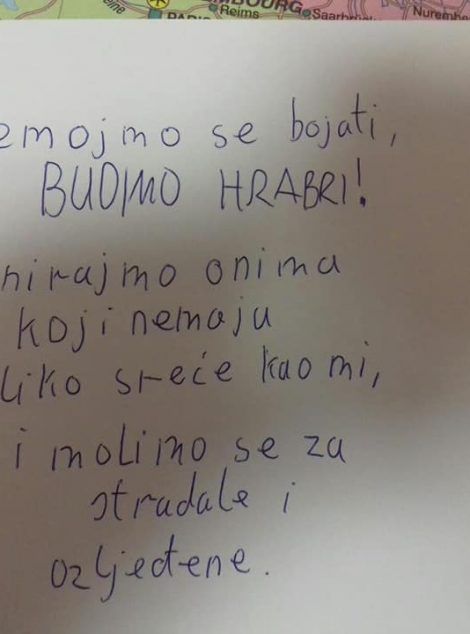 BOURG
PARIS Reims Saarbrü Nurembe
emojmo se bojati,
BUDIMO HRABRI!
nirajmo onima
koji nemaju
liko sreće kao mi,
i molimo se za
stradale i
ozljeđene.